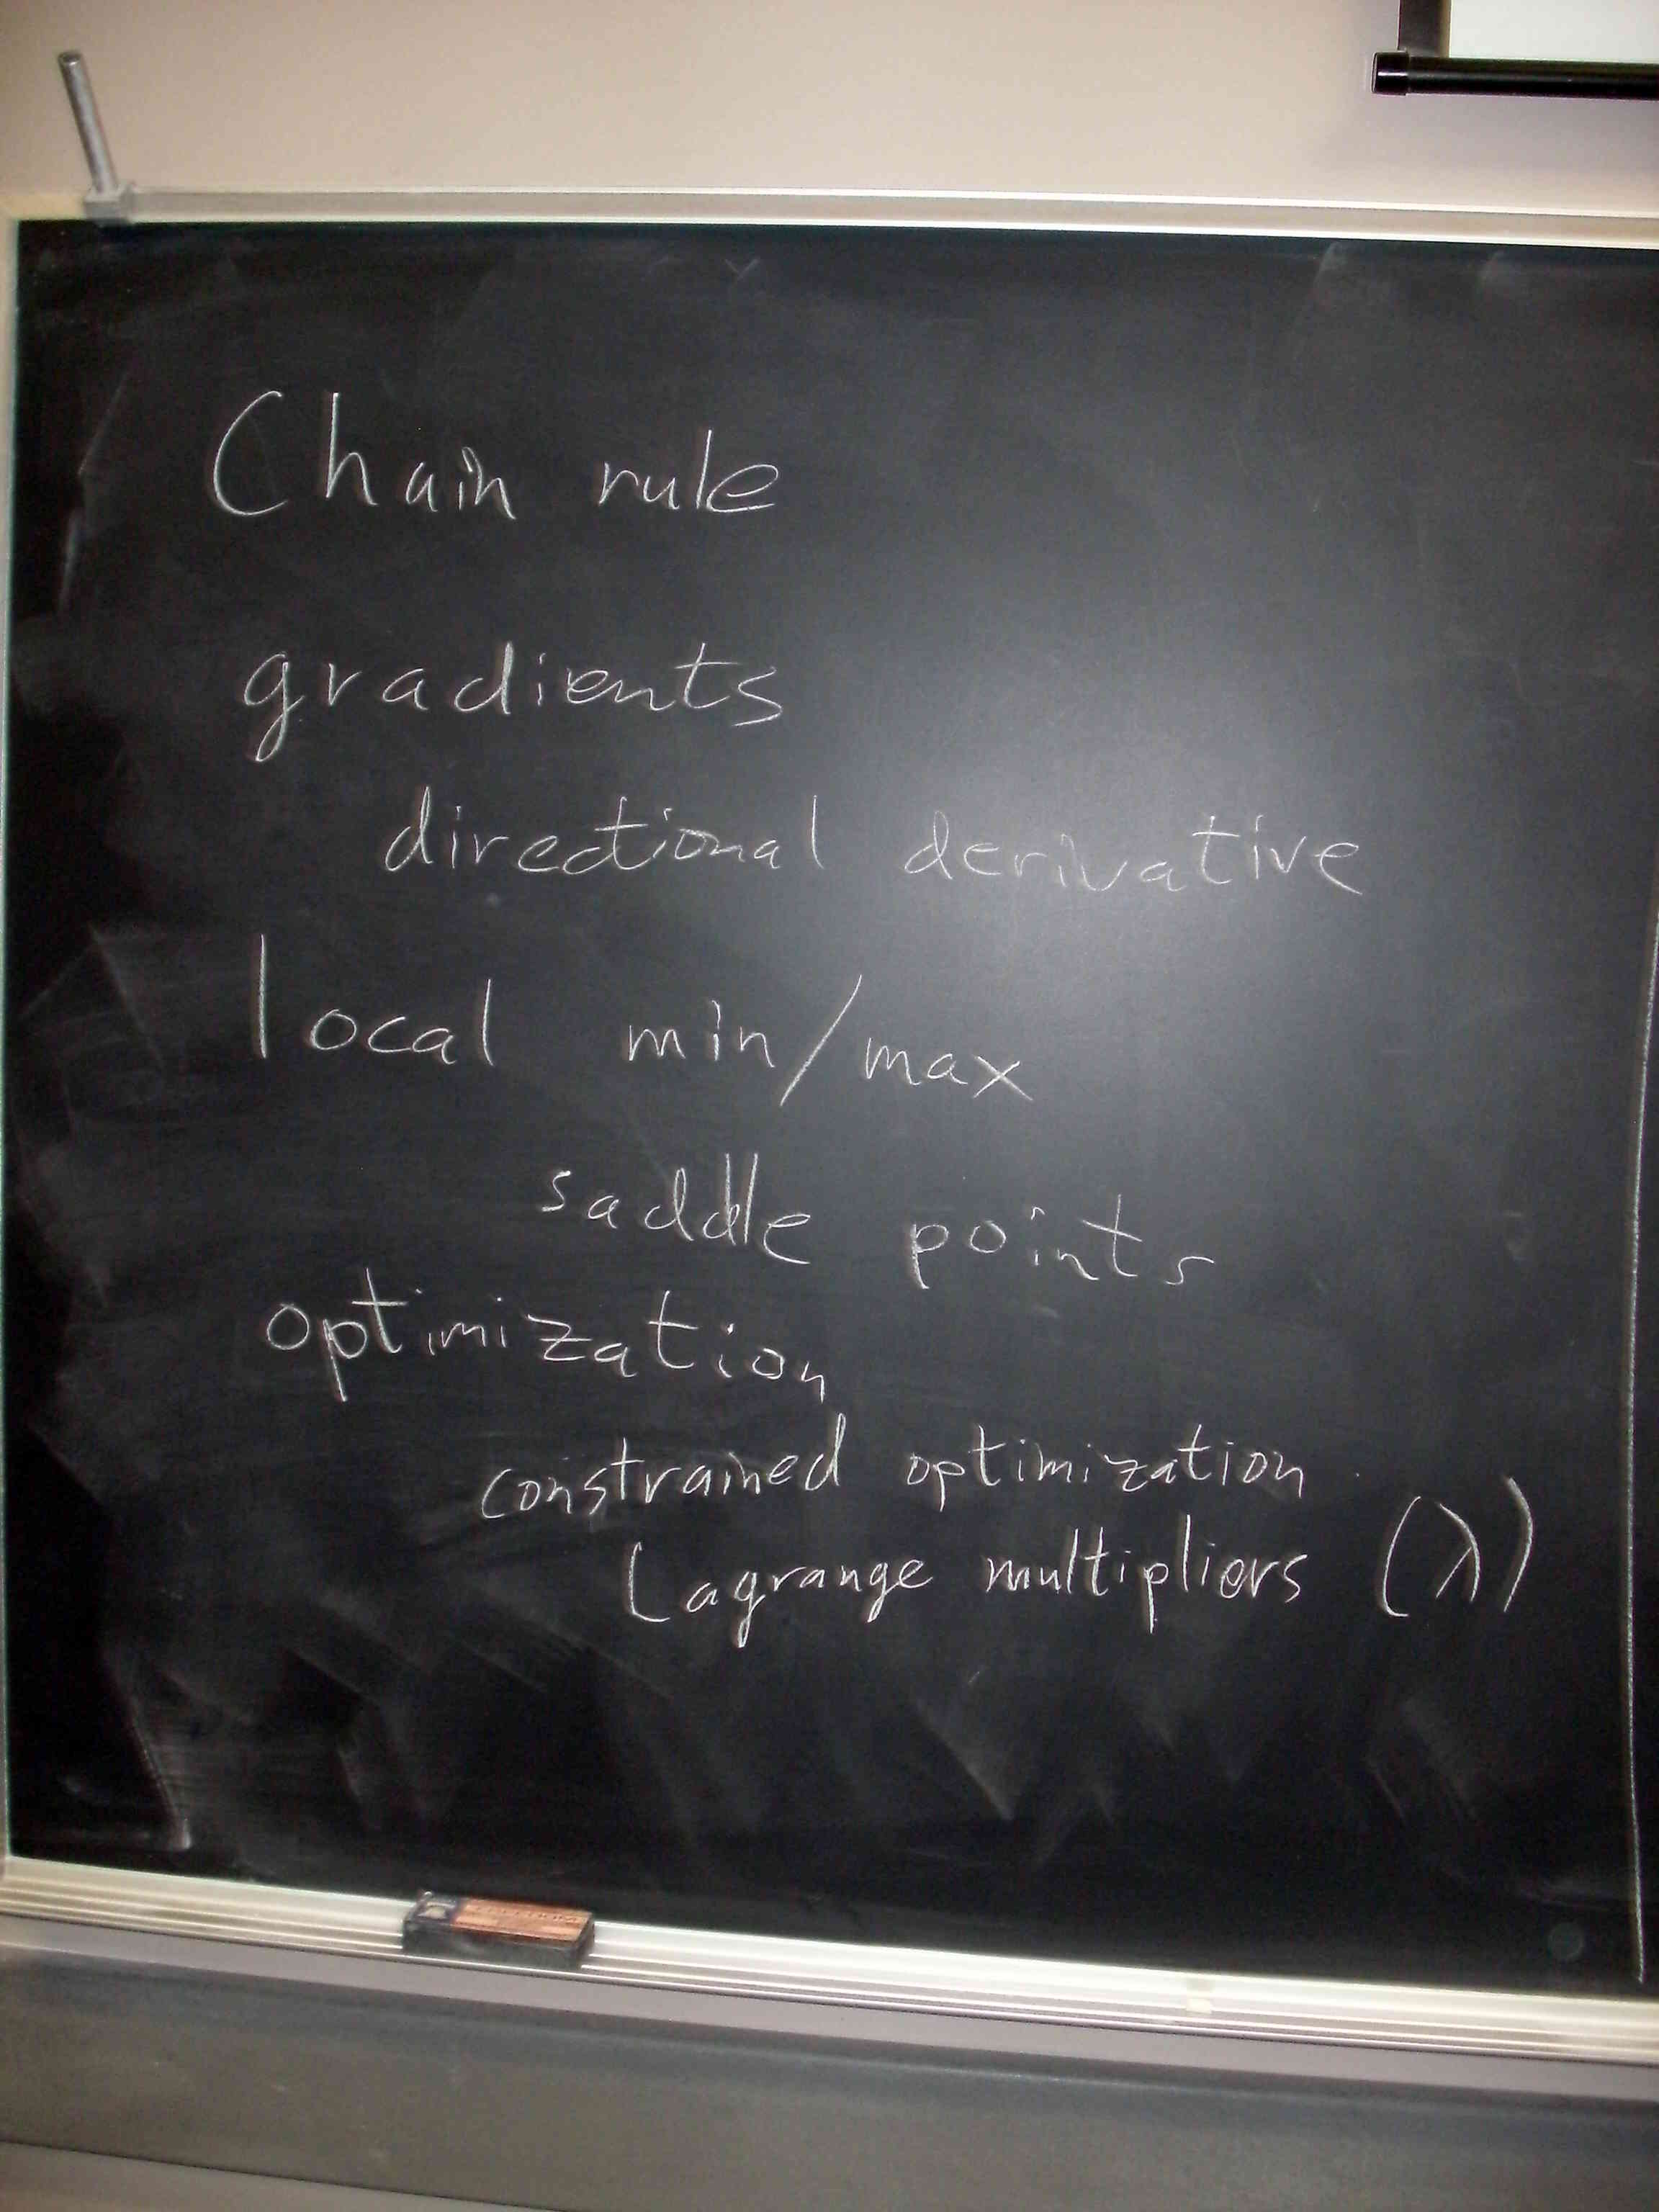 Chain rule
gradients
directional derivative
local min/max
saddle points
optimization
constrained optimization
Lagrange multipliers (λ)